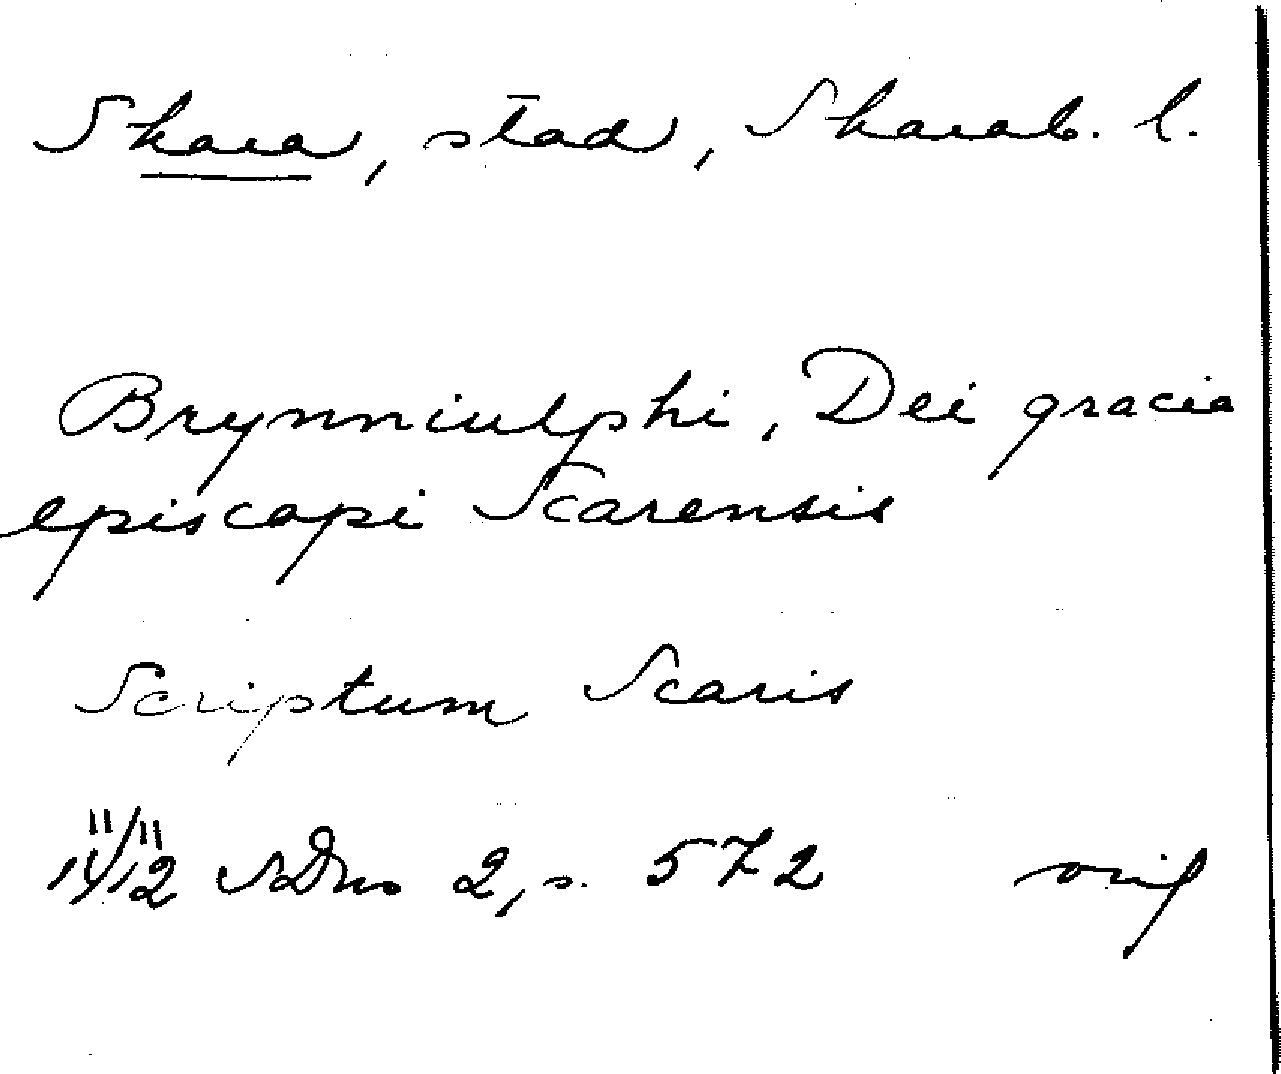 Skara, stad, Skarab. l.
Brynniulphi, Dei gracia
episcopi Scarensis
Scriptum Scaris
11/12 SDns 2, s. 572 orig